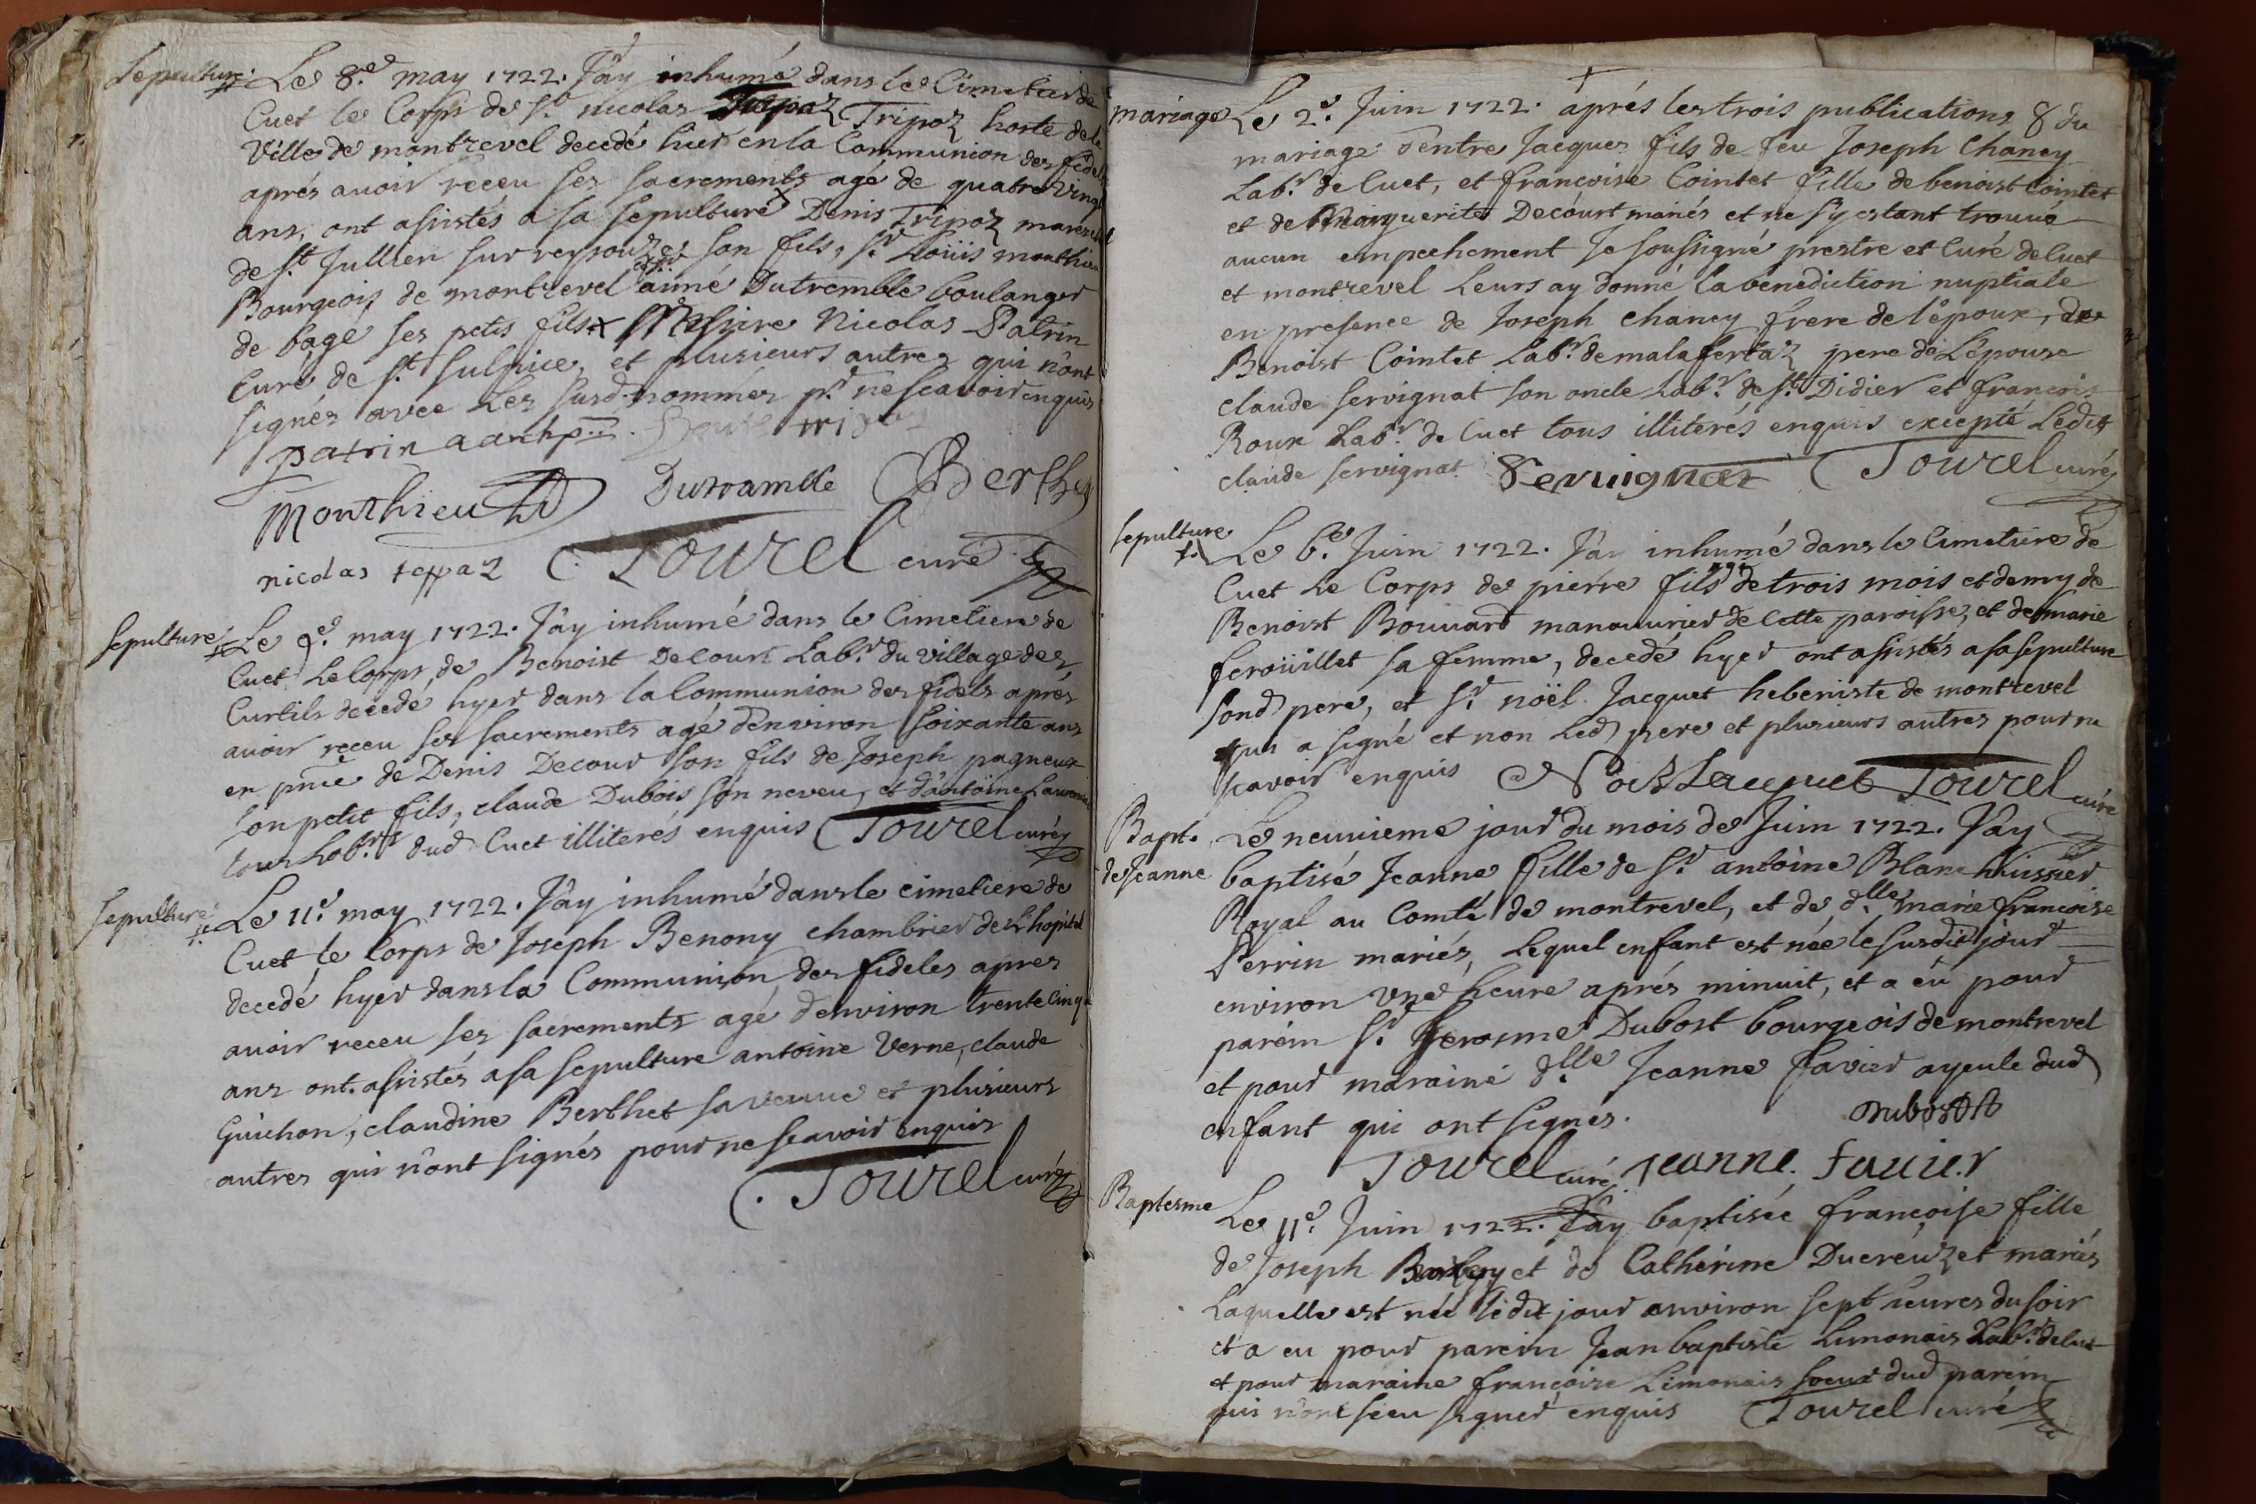 Sepulture. Le 8.e may 1722. J'ay inhumé dans le Cimetier de
Cuet le Corps de Sr. nicolas Tripoz Tripoz hoste de la
Ville de montrevel decedé hier en la Communion des fidels
aprés avoir receu ses sacrements agé de quatre vingt
ans, ont assistés a sa sepulture Denis Tripoz marechal
de St. Jullien sur reyssouze son fils, Sr. Loüis monthieu
Bourgeois de montrevel aimé Dutremble boulanger
de bagé ses petis fils Messire Nicolas Patrin
Curé de St. Sulpice, et plusieurs autres qui n'ont
signés avec les susd. nommés pr. ne scavoir enquis
patrin
Monthieu Dutramble Berthe
nicolas Tourel curé
Sepulture Le 9.e may 1722. J'ay inhumé dans le Cimetiere de
Cuet le Corps de Benoist Decourt Labr. du village des
Curtils decedé hyer dans la Communion des fidels aprés
avoir receu ses sacrements agé d'environ soixante ans
en pnce de Denis Decour son fils de Joseph pagneux
son petit fils, claude Dubois son neveu, et d'antoine
tous Labrs. dud Cuet illiterés enquis Tourel curé
Sepulture Le 11.e may 1722. J'ay inhumé dans le cimetiere de
Cuet le Corps de Joseph Benony chambrier de L'hopital
decedé hyer dans la Communion des fideles apres
avoir receu ses sacrements agé d'environ trente cinq
ans ont assistés a sa sepulture antoine Verne, claude
Guichon, claudine Berthet sa veuve et plusieurs
autres qui n'ont signés pour ne scavoir enquis
Tourel curé
mariage Le 2.e Juin 1722. aprés les trois publications du
mariage d'entre Jacques fils de feu Joseph Chaney
Labr. de Cuet, et francoise Cointet fille de benoist Cointet
et de Marguerite Decourt mariés et ne s'y estant trouué
aucun empechement Je soussigné prestre et Curé de Cuet
et montrevel Leurs ay donné la benediction nuptiale
en presence de Joseph chaney frere de l'époux, de
Benoist Cointet Labr. de malafertaz pere de L'épouse
claude servignat son oncle Labr. de St. Didier et francois
Roux Labr. de Cuet tous illiterés enquis excepté Ledit
claude servignat Servignat Tourel curé
sepulture Le 6.e Juin 1722. J'ay inhumé dans le Cimetiere de
Cuet Le Corps de pierre fils agé de trois mois et demy de
Benoist Bouuard manouurier de Cette paroisse, et de marie
feroüillet sa femme, decedé hyer ont assistés a sa sepulture
sond pere, et Sr. noël Jacquet hebeniste de montrevel
qui a signé et non led pere et plusieurs autres pour ne
scavoir enquis Noel Jacquet Tourel curé
Bapt. Le neuuieme jour du mois de Juin 1722. J'ay
de Jeanne baptisé Jeanne fille de Sr. antoine Blanc huissier
Royal au Comté de montrevel, et de dlle. marie francoise
Perrin mariés, Lequel enfant est née le susdit jour
environ Une heure aprés minuit, et a eü pour
parein Sr. Jerosme Dubost bourgeois de montrevel
et pour maraine dlle. Jeanne favier ayeule dud
enfant qui ont signés. Dubost
Tourel curé Jeanne fauier
Baptesme Le 11.e Juin 1722. J'ay baptisée francoise fille
de Joseph et de Catherine Ducreuzet mariés
Laquelle est née ledit jour environ sept heures du soir
et a eu pour parein Jean baptiste Limonais Labr. de Cuet
et pour maraine francoise Limonais soeur dud parein
qui n'ont sceu signer enquis Tourel curé